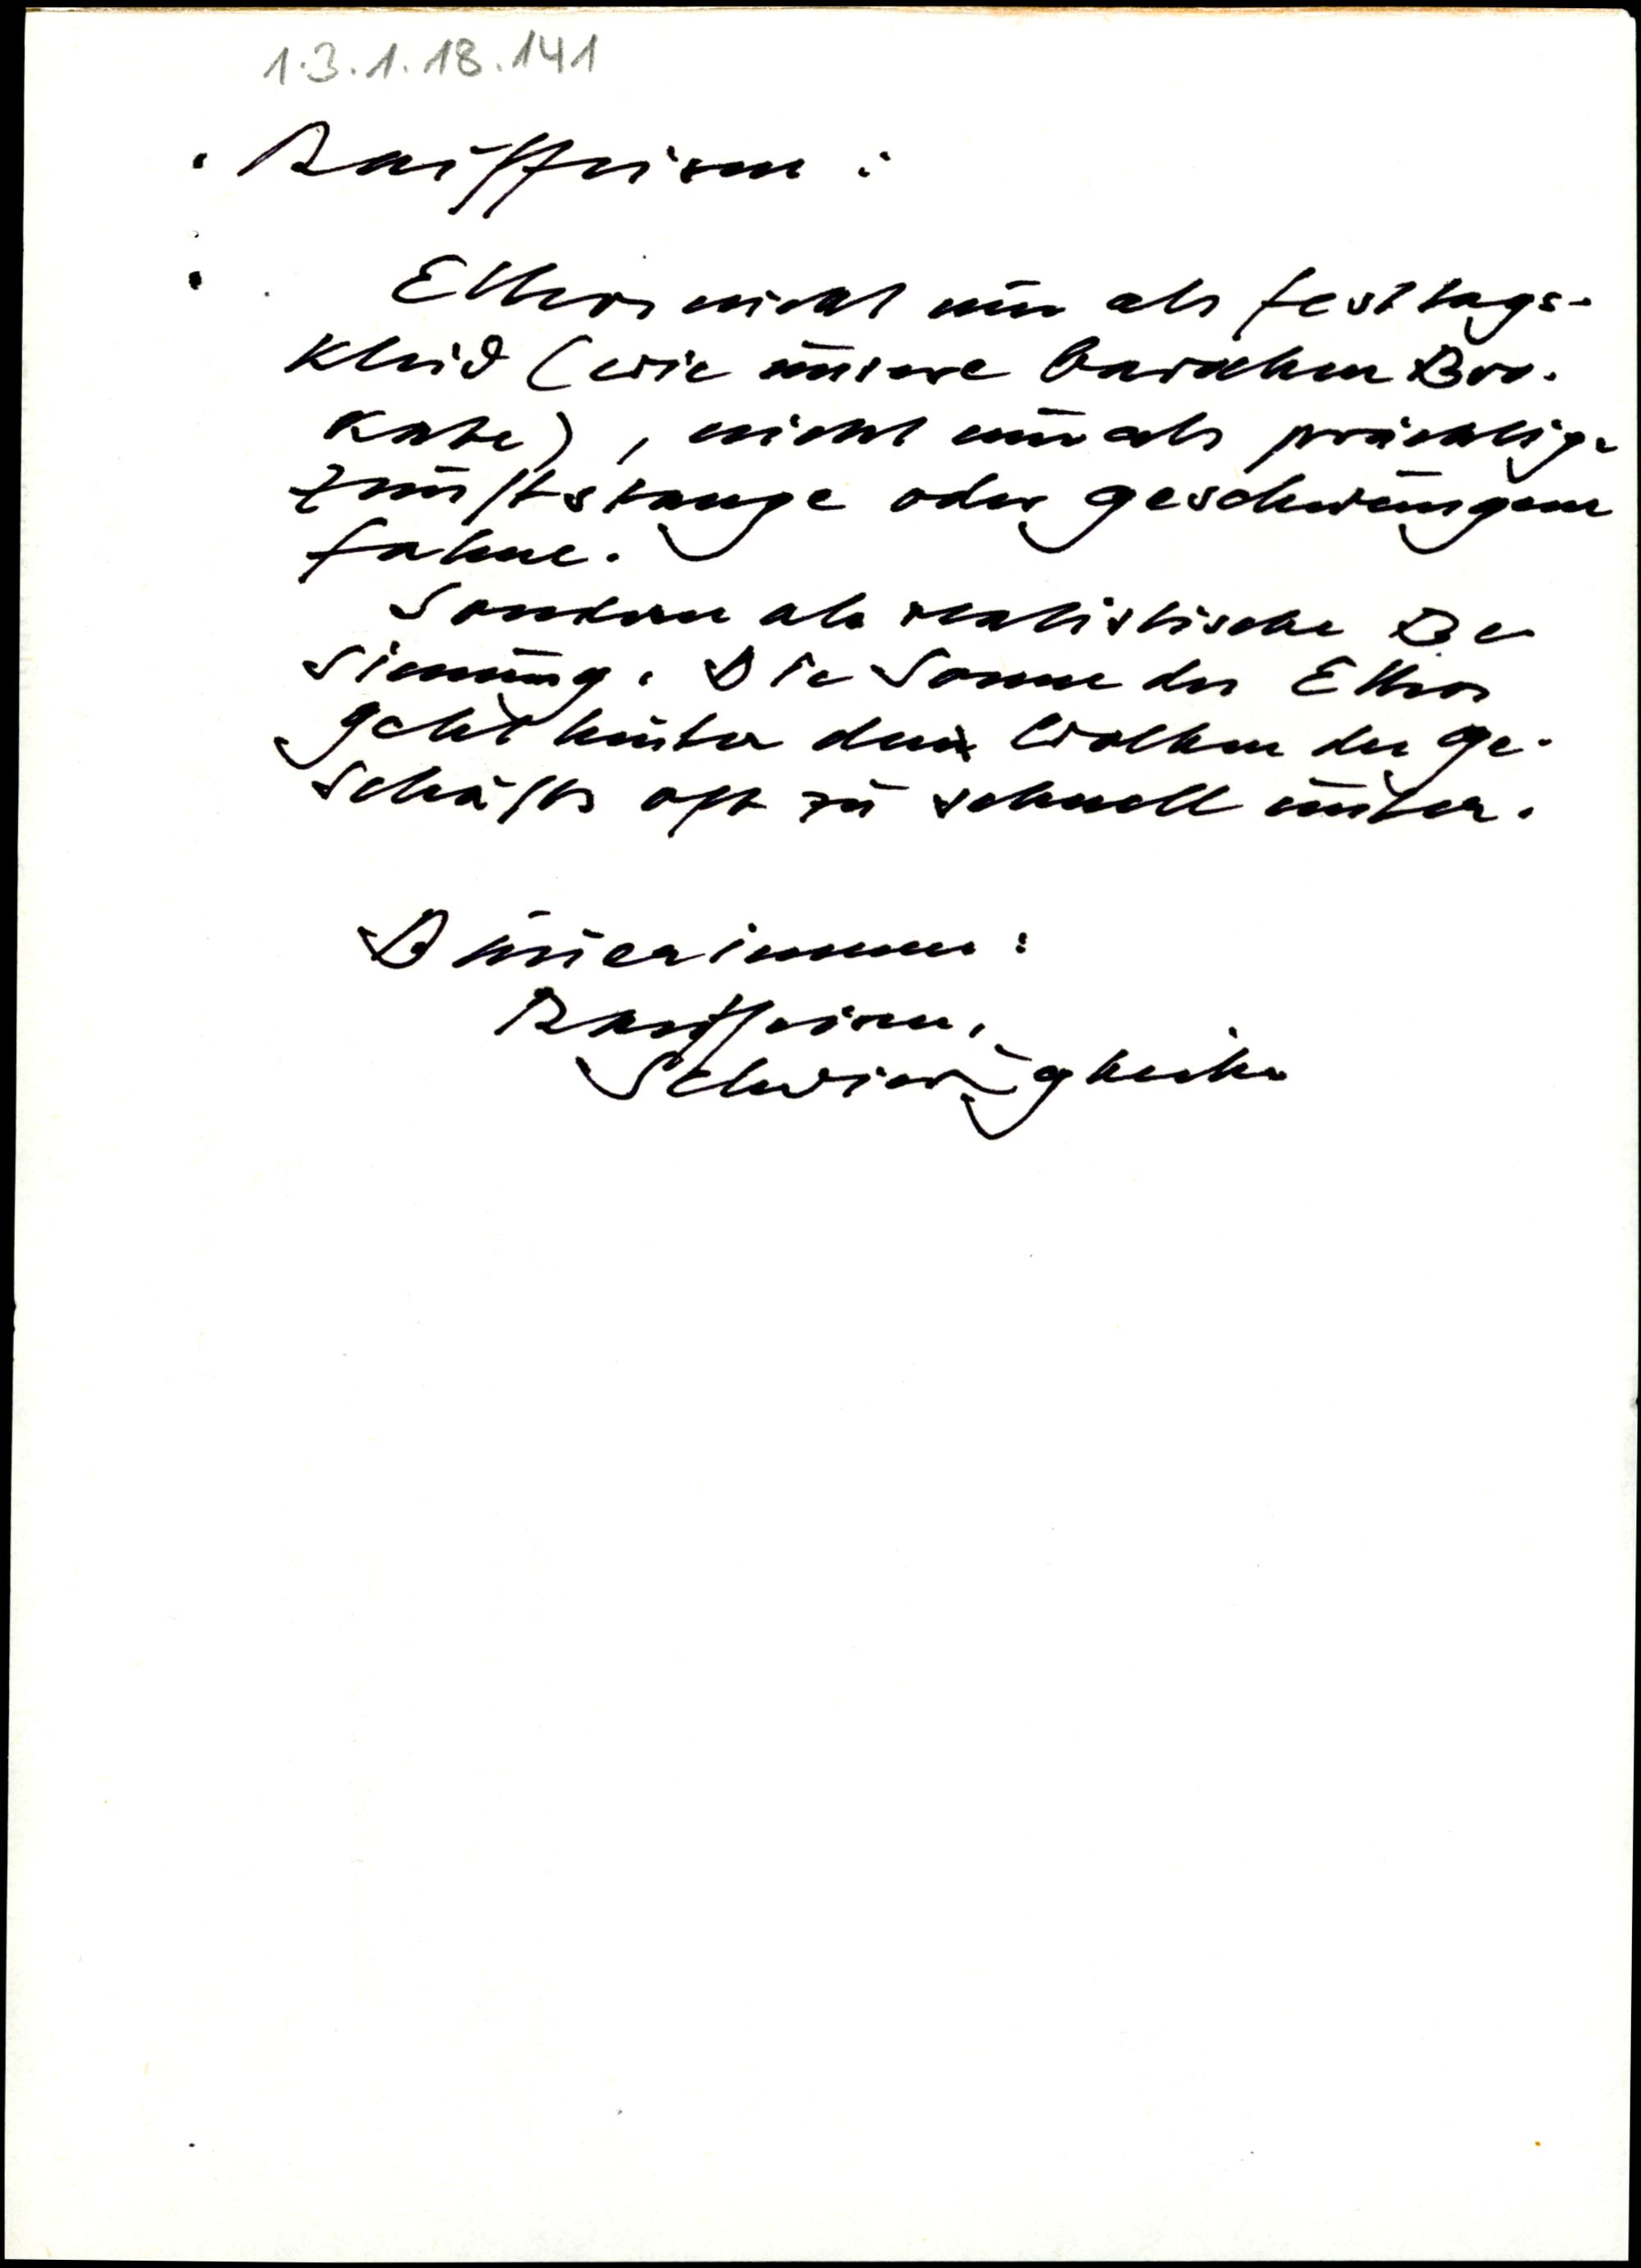 1.3.1.18.141
Raiffeisen:
Ethos nicht nur als Festtags-
kleid (wie unsere barocken Bro-
kate), nicht nur als prächtige
Zunftstange oder geschwungene
Fahne.
Sondern als realistische Be
sinnung. Die Sonne des Ethos
geht hinter den Wolken der Ge-
schäfte oft zu schnell unter.
Bäuerinnen:
Raiffeisen,
Schwierigkeiten